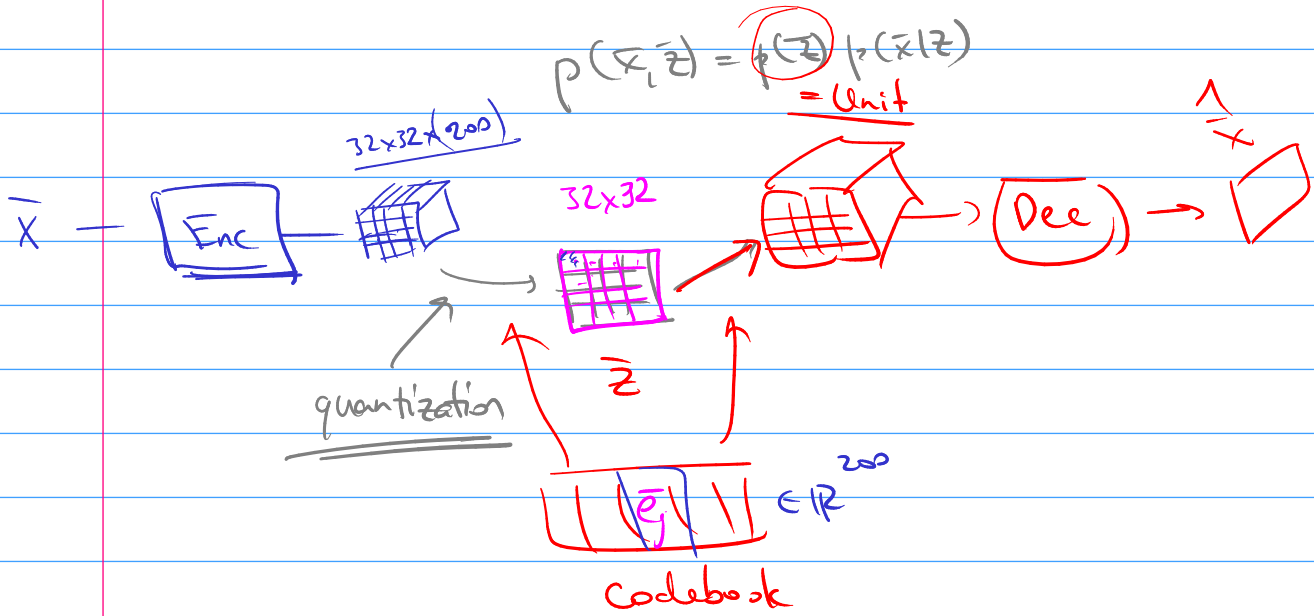 p(x̄, z̄) = p(z̄) p(x̄|z)
= Unif
32×32×(200)
x̂
32×32
x̄
Enc
Dec
z̄
quantization
ēj
∈ ℝ²⁰⁰
Codebook